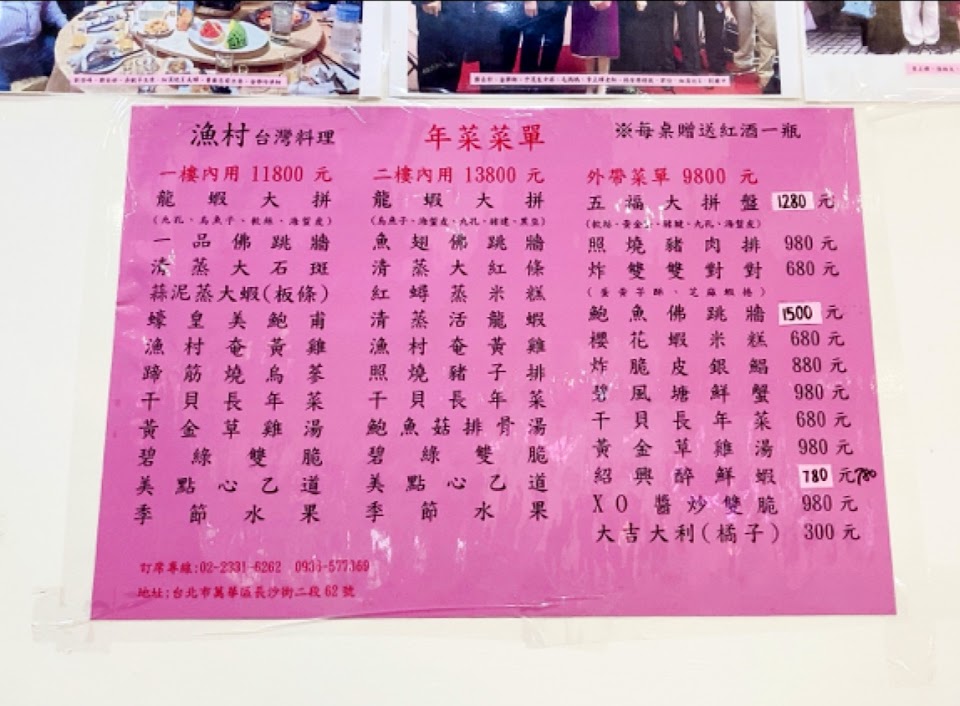 漁村台灣料理
年菜菜單
※每桌贈送紅酒一瓶
一樓內用 11800 元
龍蝦大拼
(九孔、烏魚子、軟絲、海蜇皮)
一品佛跳牆
清蒸大石斑
蒜泥蒸大蝦(板條)
蠔皇美鮑甫
漁村奄黃雞
蹄筋燒烏蔘
干貝長年菜
黃金草雞湯
碧綠雙脆
美點心乙道
季節水果
二樓內用 13800 元
龍蝦大拼
(烏魚子、海蜇皮、九孔、豬腱、黑盤)
魚翅佛跳牆
清蒸大紅條
紅蟳蒸米糕
清蒸活龍蝦
漁村奄黃雞
照燒豬子排
干貝長年菜
鮑魚菇排骨湯
碧綠雙脆
美點心乙道
季節水果
外帶菜單 9800 元
五福大拼盤 1280 元
(軟絲、黃金、豬腱、九孔、海蜇皮)
照燒豬肉排 980 元
炸雙雙對對 680 元
(蛋黃芋酥、芝麻蝦捲)
鮑魚佛跳牆 1500 元
櫻花蝦米糕 680 元
炸脆皮銀鯧 880 元
碧風塘鮮蟹 980 元
干貝長年菜 680 元
黃金草雞湯 980 元
紹興醉鮮蝦 780 元 780
XO醬炒雙脆 980 元
大吉大利(橘子) 300 元
訂席專線:02-2331-6262 0936-577369
地址:台北市萬華區長沙街二段 62 號